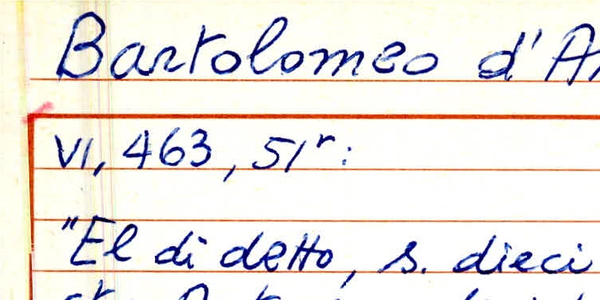 Bartolomeo d'A
VI, 463, 51r:
"El dì detto, s. dieci